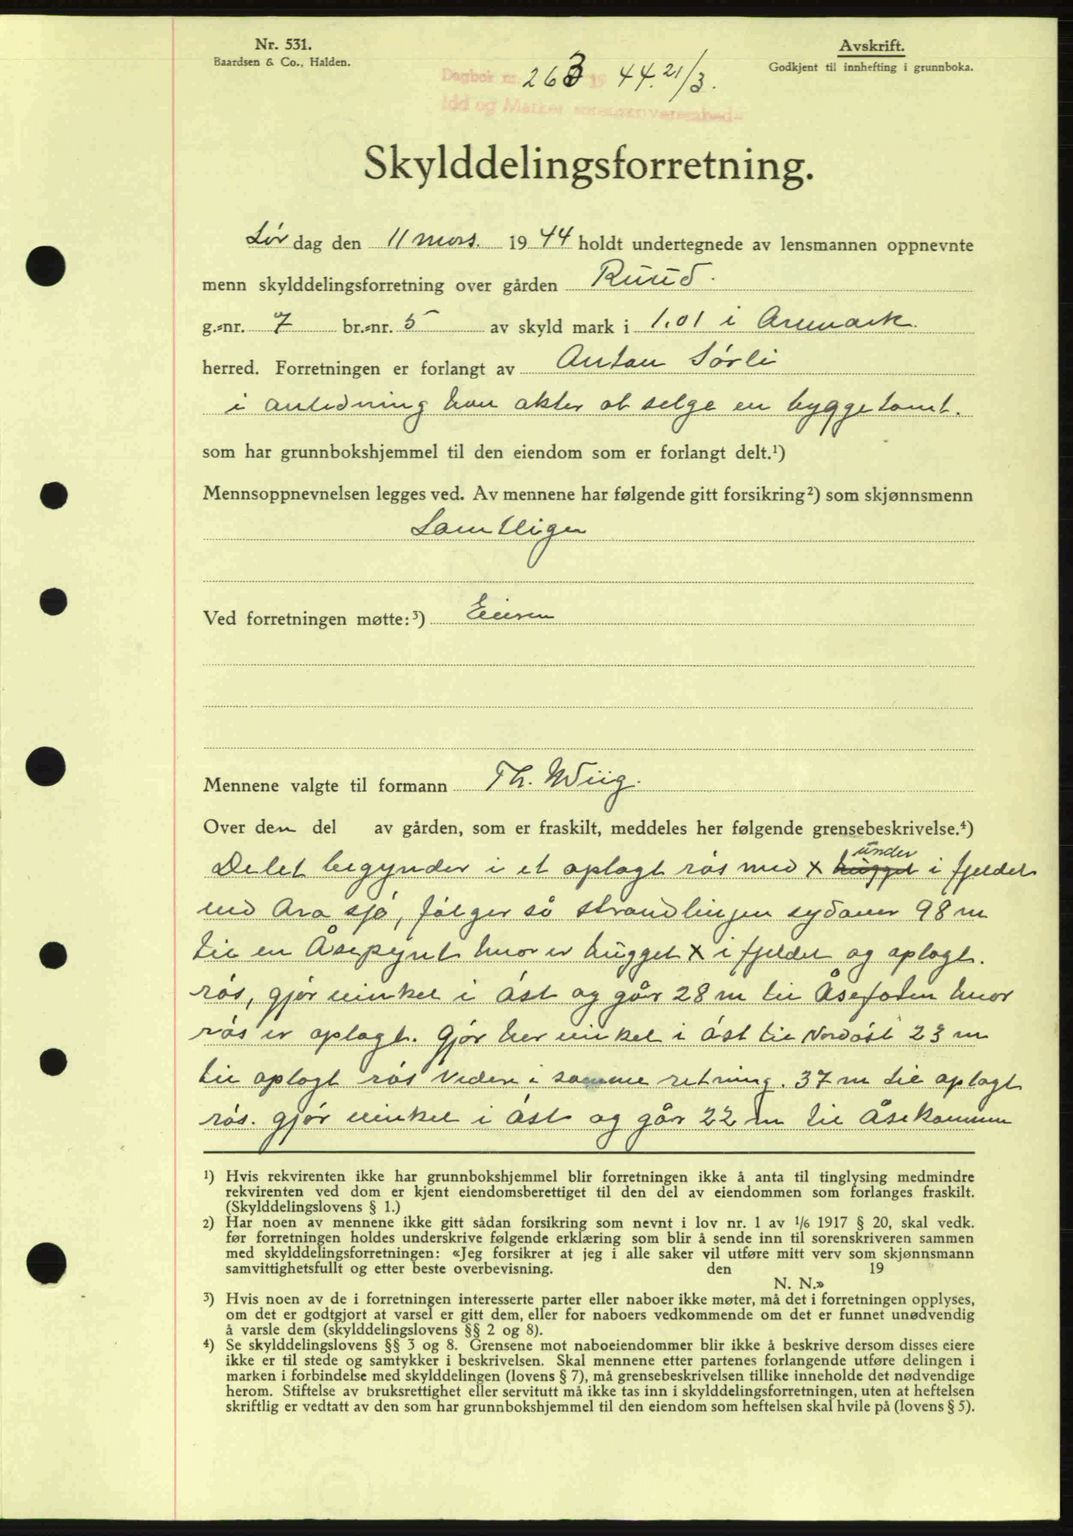 Nr. 531.
Baardsen & Co., Halden.
Avskrift.
Godkjent til innhefting i grunnboka.
Dagbok nr. 263 19 44. 21/3.
Idd og Marker sorenskriverembede
Skylddelingsforretning.
Lørdag den 11 mars. 1944 holdt undertegnede av lensmannen oppnevnte
menn skylddelingsforretning over gården Ruud.
g.=nr. 7 br.=nr. 5 av skyld mark i 1.01 i Aremark
herred. Forretningen er forlangt av Anton Sørli
i anledning han akter at selge en byggetomt.
som har grunnbokshjemmel til den eiendom som er forlangt delt.¹)
Mennsoppnevnelsen legges ved. Av mennene har følgende gitt forsikring²) som skjønnsmenn
Samtlige
Ved forretningen møtte:³) Eieren
Mennene valgte til formann Th. Wiig.
Over den del av gården, som er fraskilt, meddeles her følgende grensebeskrivelse.⁴)
Delet begynder i et oplagt rös med x hugget under i fjeldet
ved Ara sjø, følger så strandlinjen sydover 98 m
til en Åsepynt hvor er hugget x i fjeldet og oplagt.
rös, gjör vinkel i öst og går 28 m til Åsefoten hvor
rös er oplagt. Gjör her vinkel i öst til Nordöst 23 m
til oplagt rös videre i samme retning. 37 m til oplagt
rös. gjör vinkel i öst og går 22 m til Åsekammen
¹) Hvis rekvirenten ikke har grunnbokshjemmel blir forretningen ikke å anta til tinglysing medmindre
rekvirenten ved dom er kjent eiendomsberettiget til den del av eiendommen som forlanges fraskilt.
(Skylddelingslovens § 1.)
²) Har noen av mennene ikke gitt sådan forsikring som nevnt i lov nr. 1 av 1/6 1917 § 20, skal vedk.
før forretningen holdes underskrive følgende erklæring som blir å sende inn til sorenskriveren sammen
med skylddelingsforretningen: «Jeg forsikrer at jeg i alle saker vil utføre mitt verv som skjønnsmann
samvittighetsfullt og etter beste overbevisning. den 19
N. N.»
³) Hvis noen av de i forretningen interesserte parter eller naboer ikke møter, må det i forretningen opplyses,
om det er godtgjort at varsel er gitt dem, eller for naboers vedkommende om det er funnet unødvendig
å varsle dem (skylddelingslovens §§ 2 og 8).
⁴) Se skylddelingslovens §§ 3 og 8. Grensene mot naboeiendommer blir ikke å beskrive dersom disses eiere
ikke er til stede og samtykker i beskrivelsen. Skal mennene etter partenes forlangende utføre delingen i
marken i forbindelse med skylddelingen (lovens § 7), må grensebeskrivelsen tillike inneholde det nødvendige
herom. Stiftelse av bruksrettighet eller servitutt må ikke tas inn i skylddelingsforretningen, uten at heftelsen
skriftlig er vedtatt av den som har grunnbokshjemmel til den eiendom som heftelsen skal hvile på (lovens § 5).